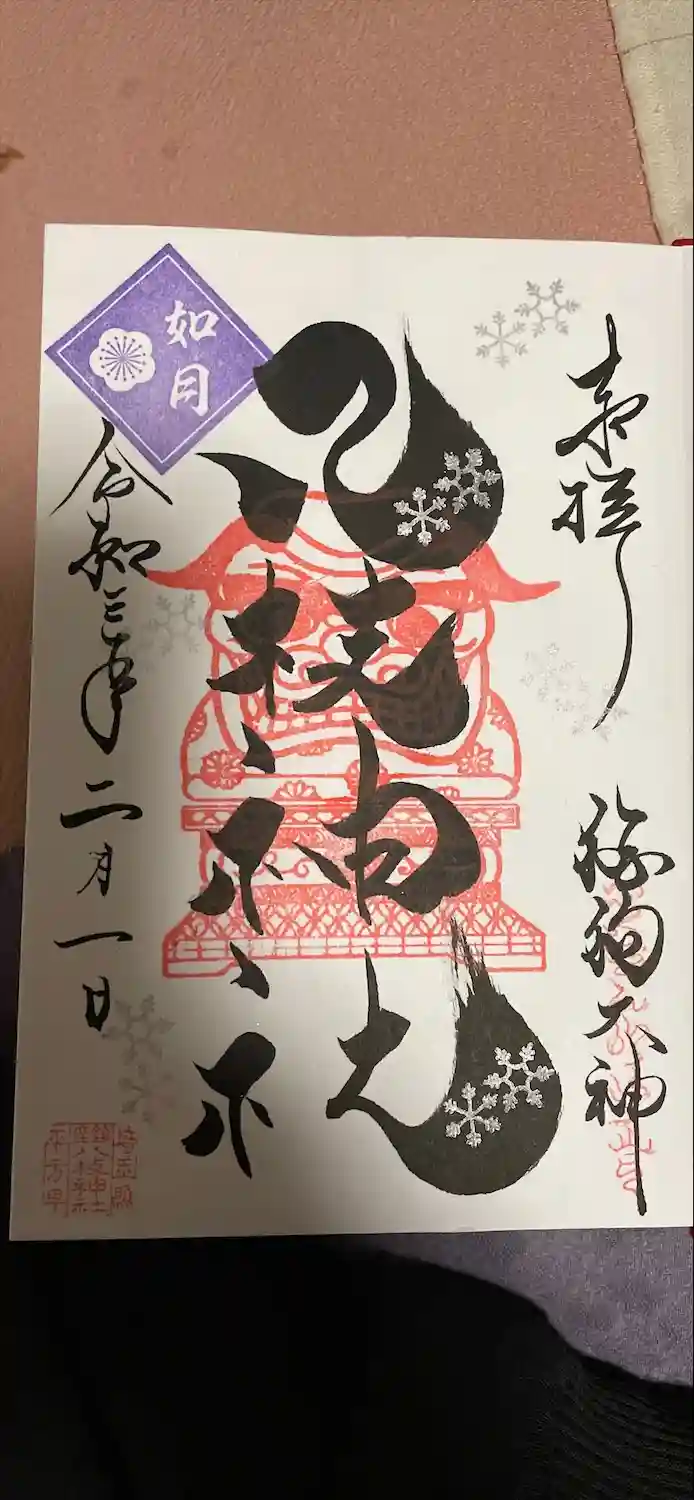 奉拝
狛狗大神
八枝神社
如月
令和三年二月一日
埼玉県